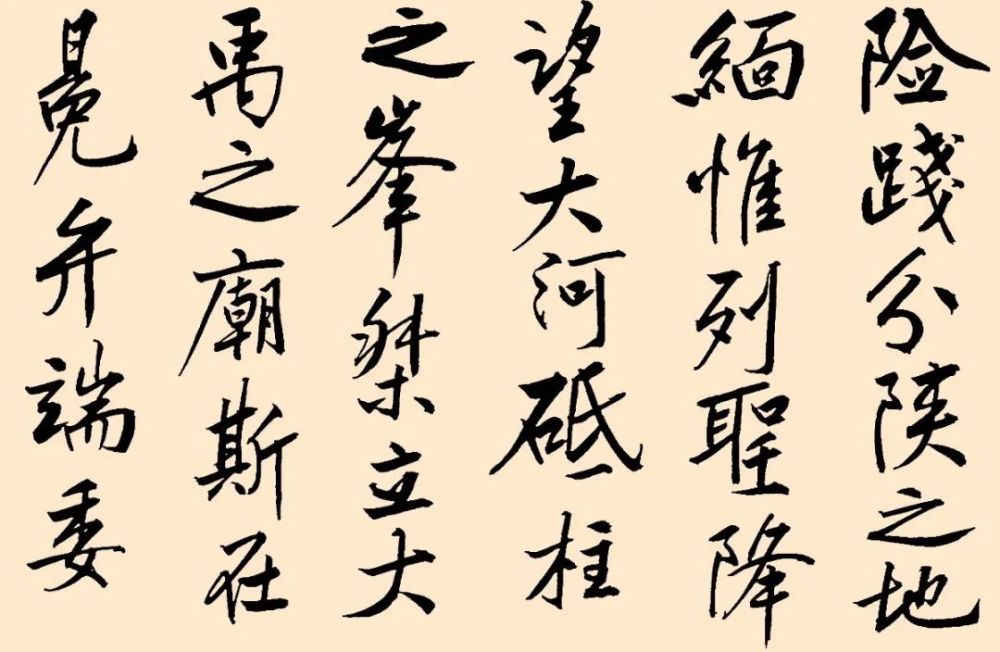 险踐分陕之地
緬惟列聖降
望大河砥柱
之峯桀立大
禹之廟斯在
冕弁端委